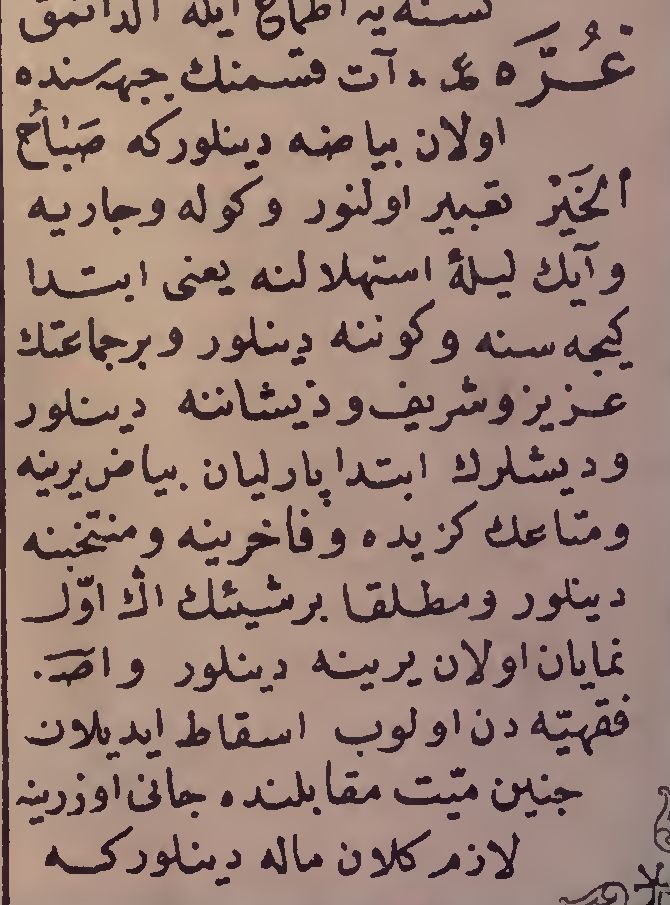 نسنه یه اطماع ایله الداتمق
غُرَّه ع. آت قسمنك جبهه سنده
اولان بیاضه دینلورکه صَبَاحُ
اَلْخَیْرْ تعبیر اولنور وکوله وجاریه
وآیك لیلۀ استهلالنه یعنی ابتدا
کیجه سنه وکوننه دینلور وبرجماعتك
عزیز وشریف وذیشاننه دینلور
ودیشلرك ابتدا پارلیان بیاض یرینه
ومتاعك کزیده وفاخرینه ومنتخبنه
دینلور ومطلقا برشیئك اڭ اوّل
نمایان اولان یرینه دینلور واصـ.
فقهیّه دن اولوب اسقاط ایدیلان
جنین میّت مقابلنده جانی اوزرینه
لازم کلان ماله دینلورکه